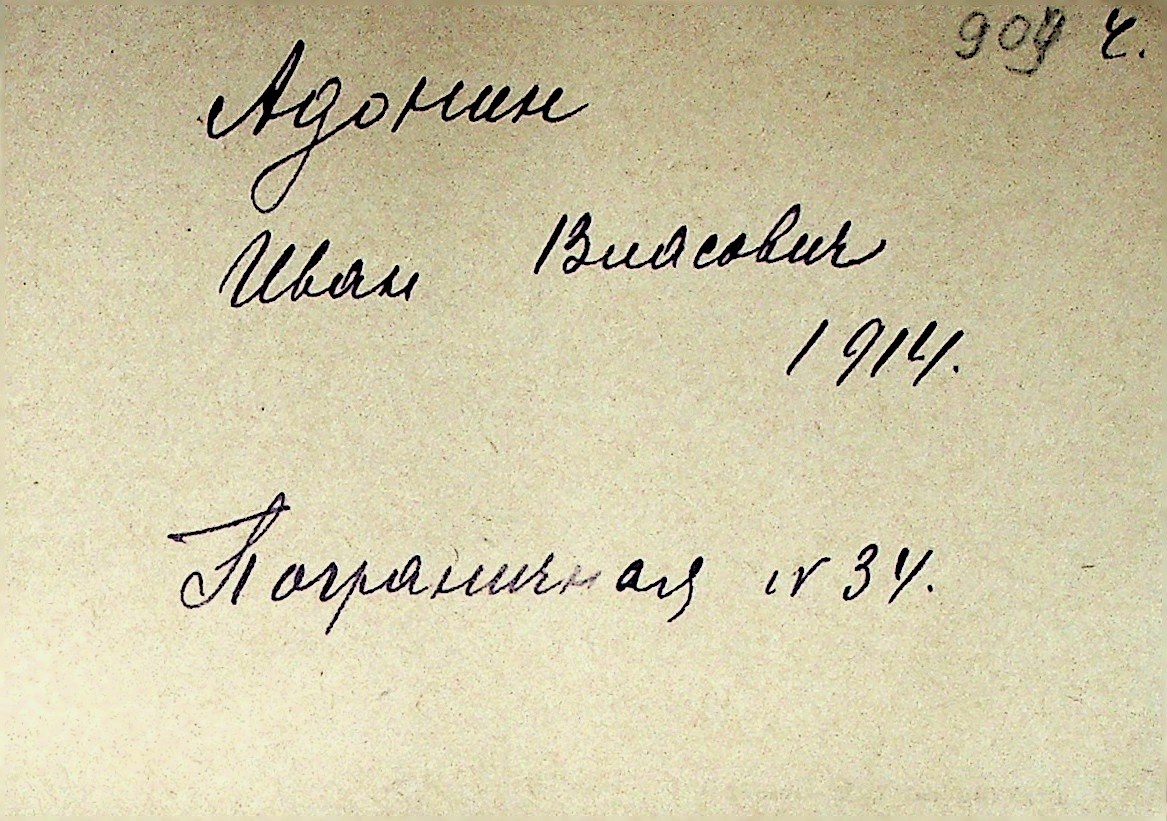 ч.
Адонин
Иван Власович
1914.
Пограничная № 34.